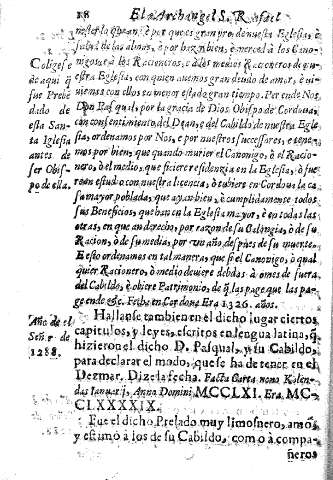 18 El Archangel S. Rafael
nester lo ovieran, è por que es gran pro de nuestra Eglesia, è
salut de las almas, è por bazer bien, è merced à los Cano-
nigos, ò à los Racioneros, ò à los medios Racioneros de nu-
estra Eglesia, con quien avemos gran deudo de amor, è vi-
viemos con ellos su mayor estado gran tiempo. Per ende Nos
Don Pasqual, por la gracia de Dios Obispo de Cordova,
con consentimiento del Dean, è del Cabildo de nuestra Egle-
sia, ordenamos por Nos, è por nuestros successores, è tene-
mos por bien, que quando muriere el Canonigo, ò el Racio-
nero, ò el medio, que ficiere residenzia en la Eglesia, ò fue-
re en estudio con nuestra licencia, ò tubiere en Cordova la ca-
sa mayor poblada, que ayan bien, è cumplidamente todos
sus Beneficios, que han en la Eglesia mayor, è en todas las
otras, en que an derecho, por razon de su Calongia, ò de su
Racion, ò de su media, por un año, despues de su muerte.
E esto ordenamos en tal manera, que si el Canonigo, ò qual
quier Racionero, ò medio deviere debdas à omes de fuera
del Cabildo, è obiere Patrimonio, de que las pague que las pa-
gen ende &c. Fecho en Cordova Era 1326. años.
Coligese
de aqui q̃
sus Prebē
dado de
esta San-
ta Iglesia
antes de
ser Obis-
po de ella.
Hallanse tambien en el dicho lugar ciertos
capitulos, y leyes, escritos en lengua latina, q̃
hizieron el dicho D. Pasqual, y su Cabildo,
para declarar el modo, que se ha de tener en el
Dezmar. Dize la fecha. Facta Carta nono Kalen-
das Ianuarij, Anno Domini MCCLXI. Era. MC-
CLXXXXIX.
Año de el
Señor de
1288.
Fue el dicho Prelado muy limosnero, amó,
y estimó à los de su Cabildo, como à compa-
ñeros